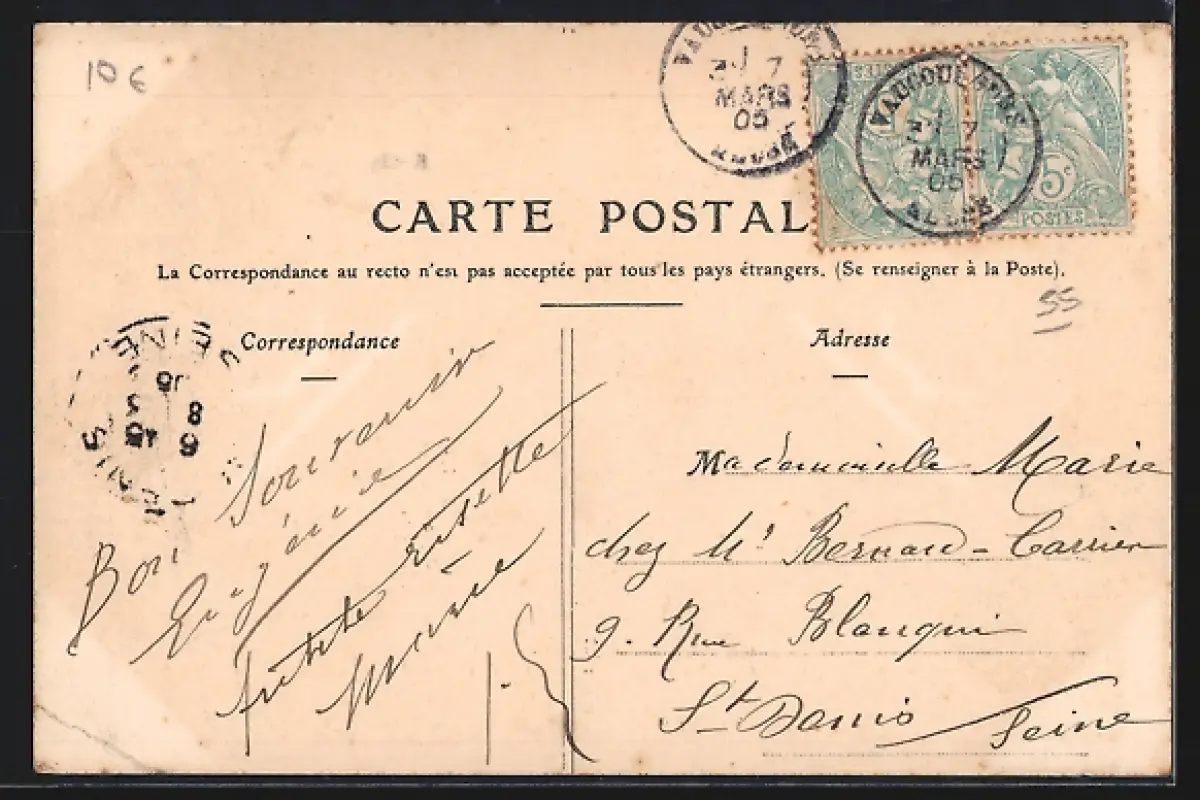 10 €
VAUCOULEURS
7
MARS
05
MEUSE
VAUCOULEURS
7
MARS
05
5c
POSTES
CARTE POSTAL
La Correspondance au recto n'est pas acceptée par tous les pays étrangers. (Se renseigner à la Poste).
55
Correspondance
Adresse
Bon Souvenir
Eugénie
Marie
Mademoiselle Marie
chez Mr Bernard-Carrier
9. Rue Blanqui
St Denis
Seine